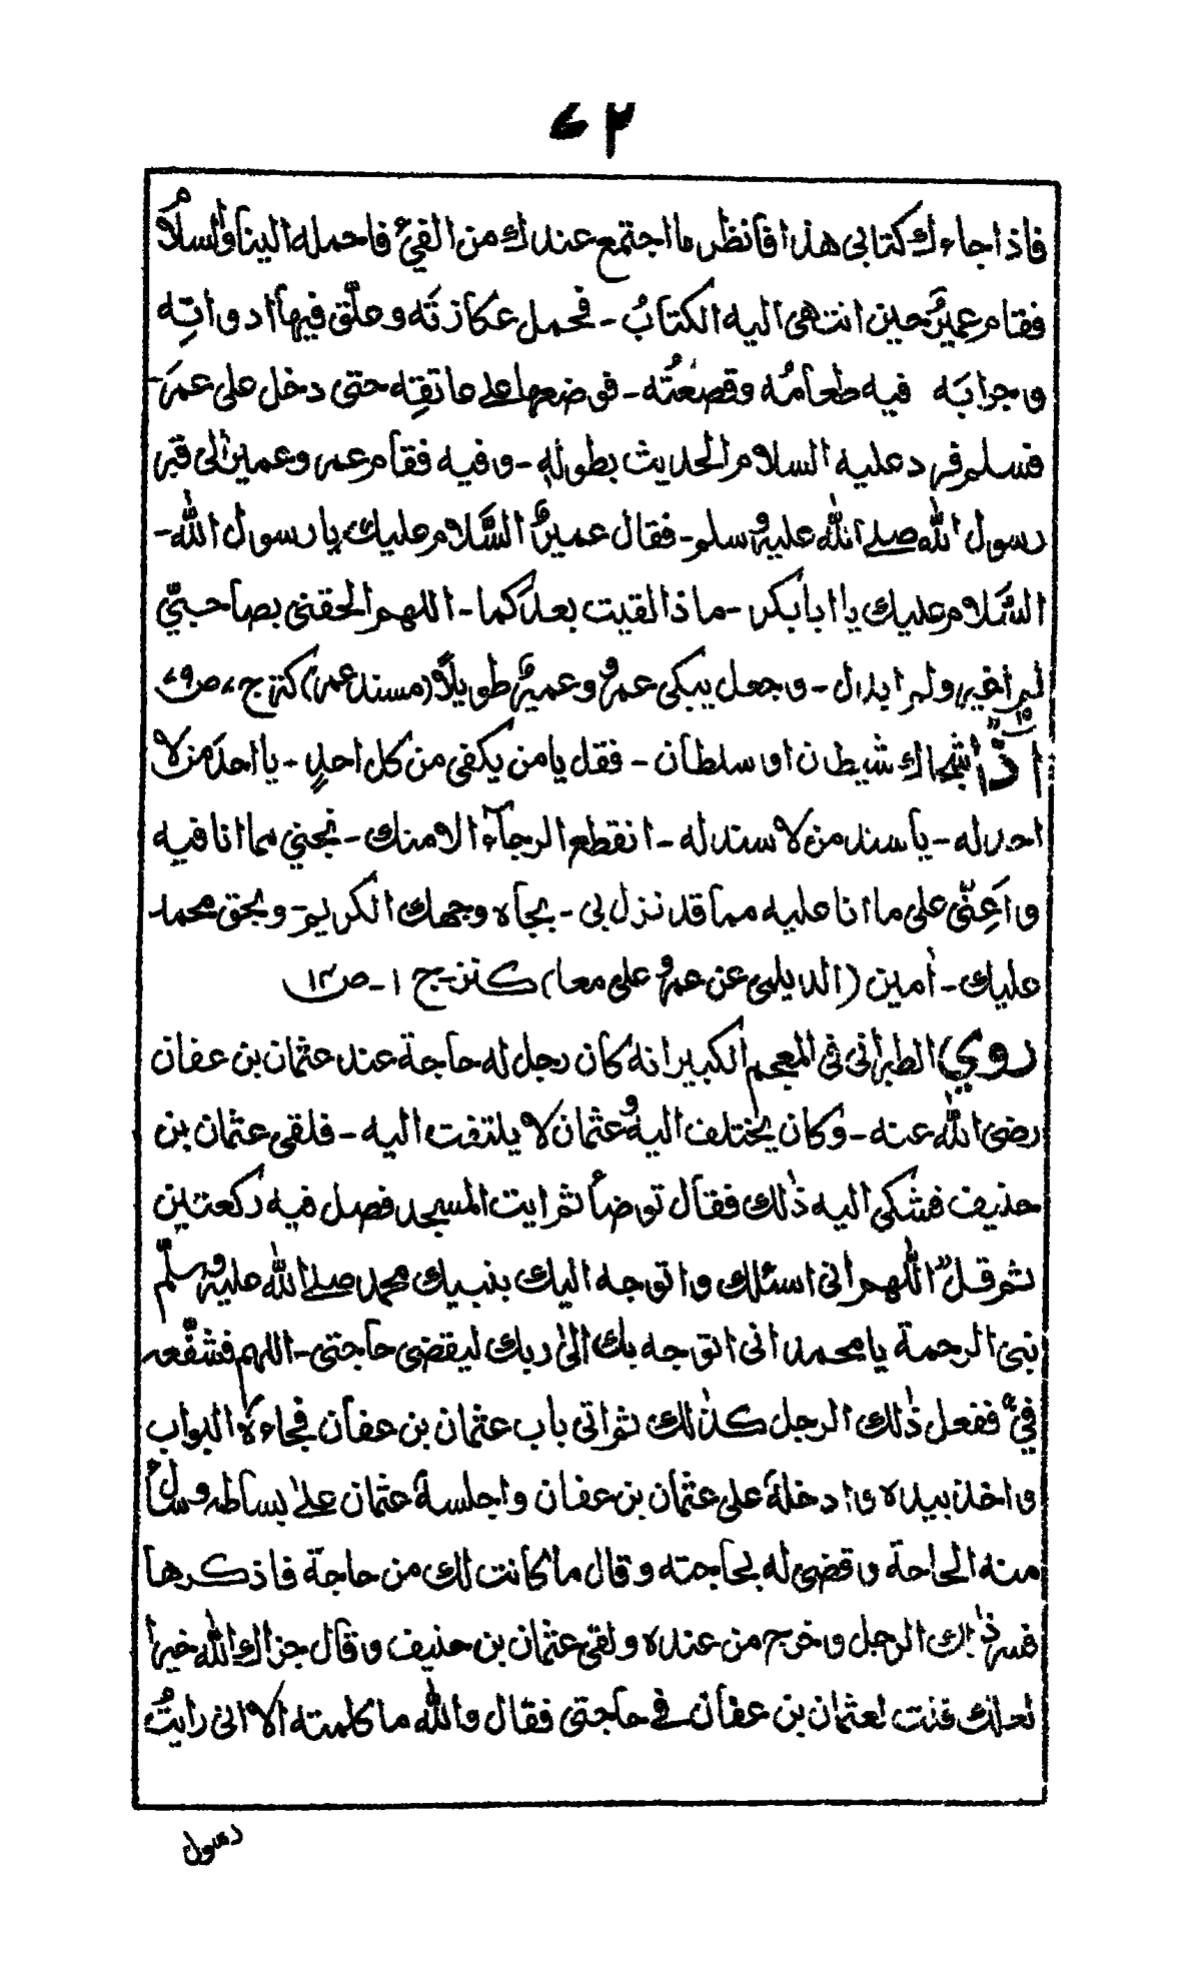 ٤٢
فاذا جاءك كتابى هذا فانظر ما اجتمع عندك من الفئ فاحمله الينا والسلام
فقام عميرٌ حين انتهى اليه الكتابُ - فحمل عكازتَه وعلّق فيها ادواتِه
وجرابَه فيه طعامُه وقصعتُه - فوضعها على عاتقِه حتى دخل على عمرَ -
فسلم فرد عليه السلام الحديث بطوله - وفيه فقام عمر وعمير الى قبر
رسول الله صلے الله عليه وسلم - فقال عميرٌ السَّلام عليك يا رسول الله -
السَّلام عليك يا ابابكر - ماذا لقيت بعدَكما - اللهم الحقنى بصاحبىّ
لم اغير ولم ابدل - وجعل يبكى عمرُ وعميرٌ طويلًا (مسند عمر) كنز ج ٧ ص ٧٩
اذا شجاك شيطان او سلطان - فقل يا من يكفى من كل احدٍ - يا احدَ من لا
احد له - يا سند من لا سند له - انقطع الرجاء الا منك - نجنى مما انا فيه
واَعِنّى على ما انا عليه مما قد نزل بى - بجاه وجهك الكريم - وبحق محمد
عليك - اٰمين (الديلمى عن عمرُ وعلى معا) كنز ج ١ - ص
روي الطبرانى فى المعجم الكبير انه كان رجل له حاجة عند عثمان بن عفان
رضى الله عنه - وكان يختلف اليه وعثمان لا يلتفت اليه - فلقى عثمان بن
حنيف فشكى اليه ذٰلك فقال توضأ ثم ايت المسجد فصل فيه ركعتين
ثم قل اللّٰهم انى اسئلك واتوجه اليك بنبيك محمد صلے الله عليه وسلّم
نبى الرحمة يا محمد انى اتوجه بك الىٰ ربك ليقضى حاجتى - اللهم فشفّعه
فىّ ففعل ذٰلك الرجل كذٰلك ثم اتى باب عثمان بن عفان فجاءه البواب
واخذ بيده وادخله على عثمان بن عفان واجلسه عثمان علىٰ بساطه وسأل
منه الحاجة وقضى له بحاجته وقال ما كانت لك من حاجة فاذكرها
فسر ذٰلك الرجل وخرج من عنده ولقى عثمان بن حنيف وقال جزاك الله خيرا
لعلك قلت لعثمان بن عفان فى حاجتى فقال والله ما كلمته الا انى رايتُ
رسول